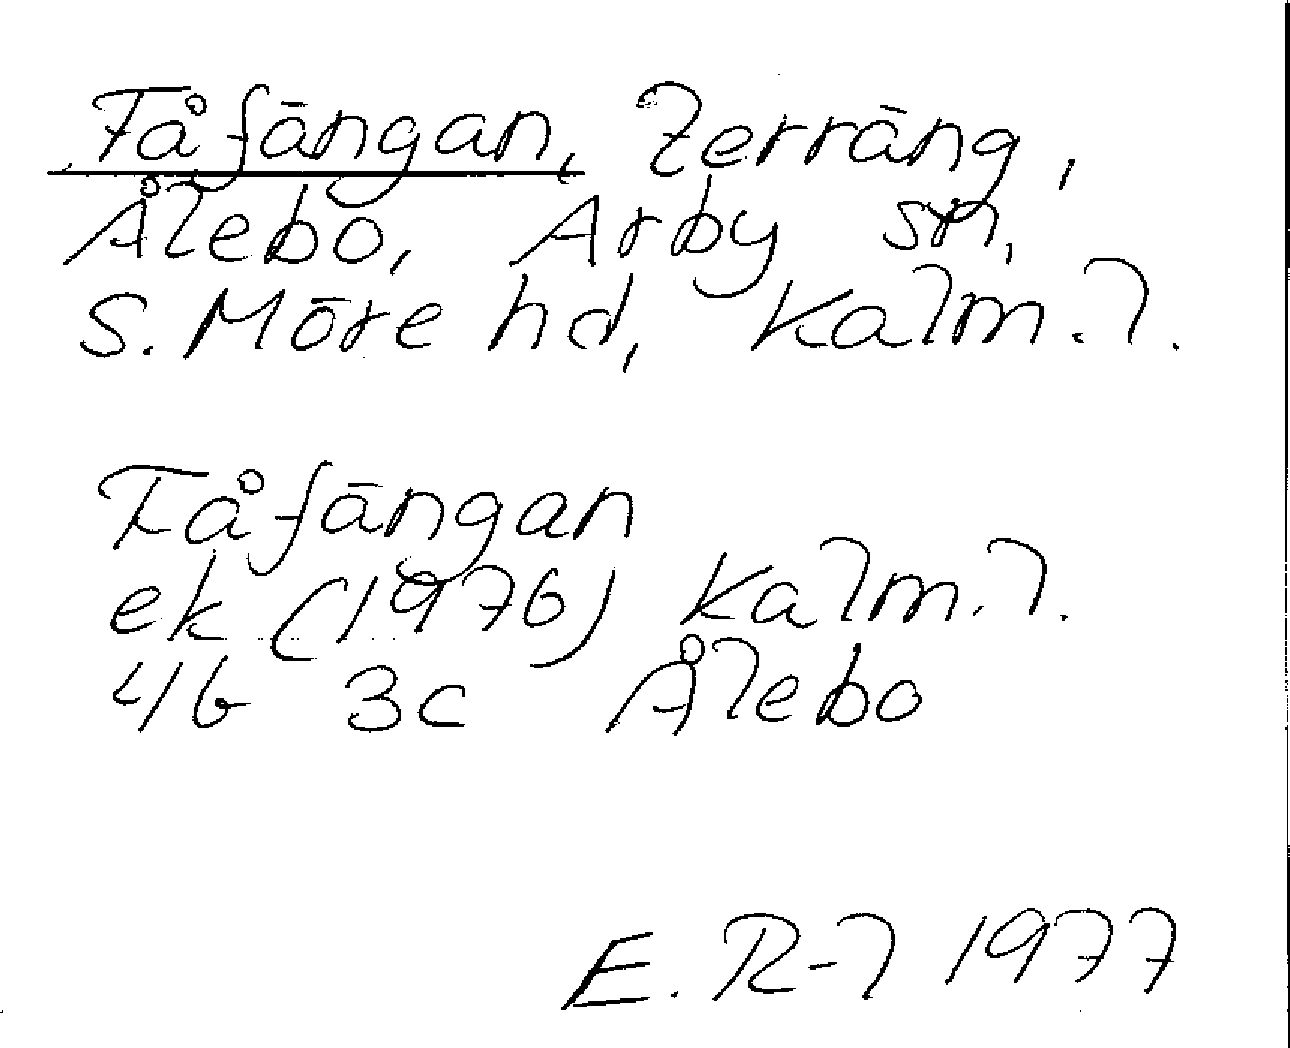 Fåfängan, terräng,
Ålebo, Arby sn,
S. Möre hd, Kalm. l.
Fåfängan
ek (1976) Kalm. l.
4G 3c Ålebo
E. R-l 1977